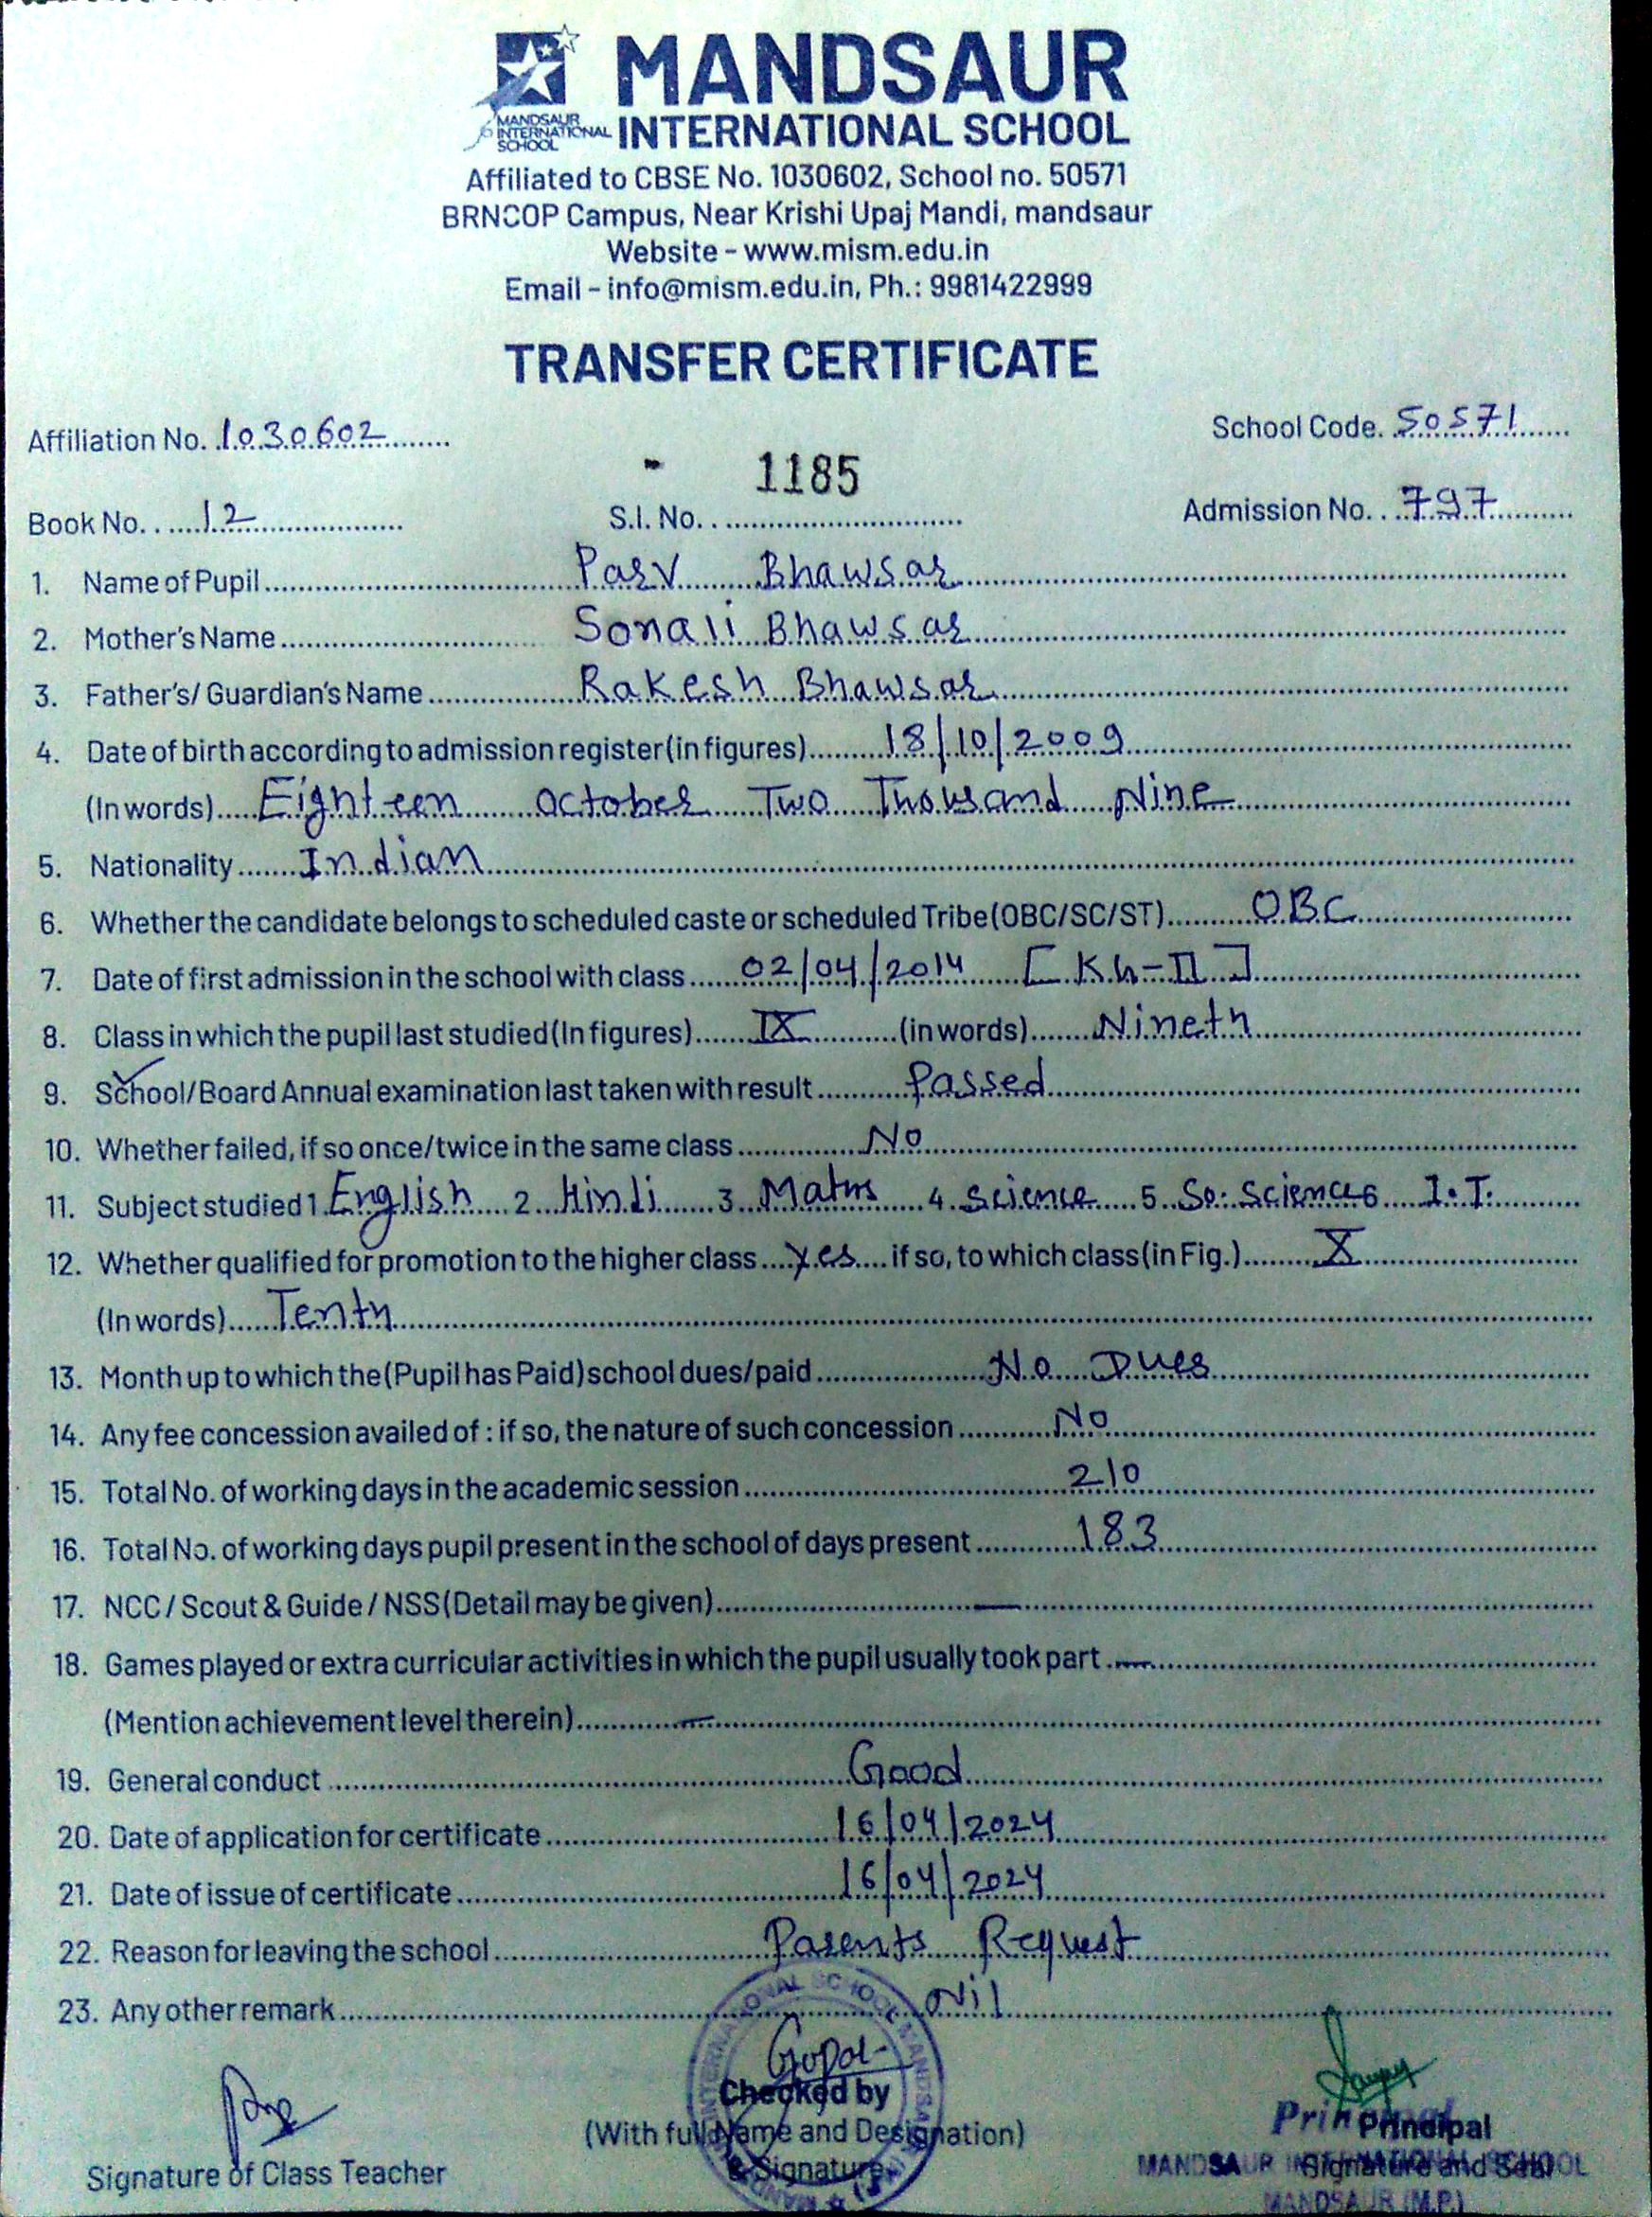 MANDSAUR
INTERNATIONAL SCHOOL
MANDSAUR
INTERNATIONAL
SCHOOL
Affiliated to CBSE No. 1030602, School no. 50571
BRNCOP Campus, Near Krishi Upaj Mandi, mandsaur
Website - www.mism.edu.in
Email - info@mism.edu.in, Ph.: 9981422999
TRANSFER CERTIFICATE
Affiliation No. 1030602 School Code. 50571
1185
Book No. 12 S.I. No. Admission No. 797
1. Name of Pupil Parv Bhawsar
2. Mother's Name Sonali Bhawsar
3. Father's/ Guardian's Name Rakesh Bhawsar
4. Date of birth according to admission register (in figures) 18/10/2009
(In words) Eighteen October Two Thousand Nine
5. Nationality Indian
6. Whether the candidate belongs to scheduled caste or scheduled Tribe (OBC/SC/ST) OBC
7. Date of first admission in the school with class 02/04/2014 [KG-II]
8. Class in which the pupil last studied (In figures) IX (in words) Nineth
9. School/Board Annual examination last taken with result Passed
10. Whether failed, if so once/twice in the same class No
11. Subject studied 1 English 2 Hindi 3 Maths 4 Science 5 So. Science 6 I.T.
12. Whether qualified for promotion to the higher class yes if so, to which class (in Fig.) X
(In words) Tenth
13. Month up to which the (Pupil has Paid) school dues/paid No Dues
14. Any fee concession availed of : if so, the nature of such concession No
15. Total No. of working days in the academic session 210
16. Total No. of working days pupil present in the school of days present 183
17. NCC / Scout & Guide / NSS (Detail may be given) —
18. Games played or extra curricular activities in which the pupil usually took part —
(Mention achievement level therein) —
19. General conduct Good
20. Date of application for certificate 16/04/2024
21. Date of issue of certificate 16/04/2024
22. Reason for leaving the school Parents Request
23. Any other remark Nil
Gopal
Checked by
(With full Name and Designation)
& Signature
Signature of Class Teacher
Principal
Principal
Signature and Seal
MANDSAUR INTERNATIONAL SCHOOL
MANDSAUR (M.P.)